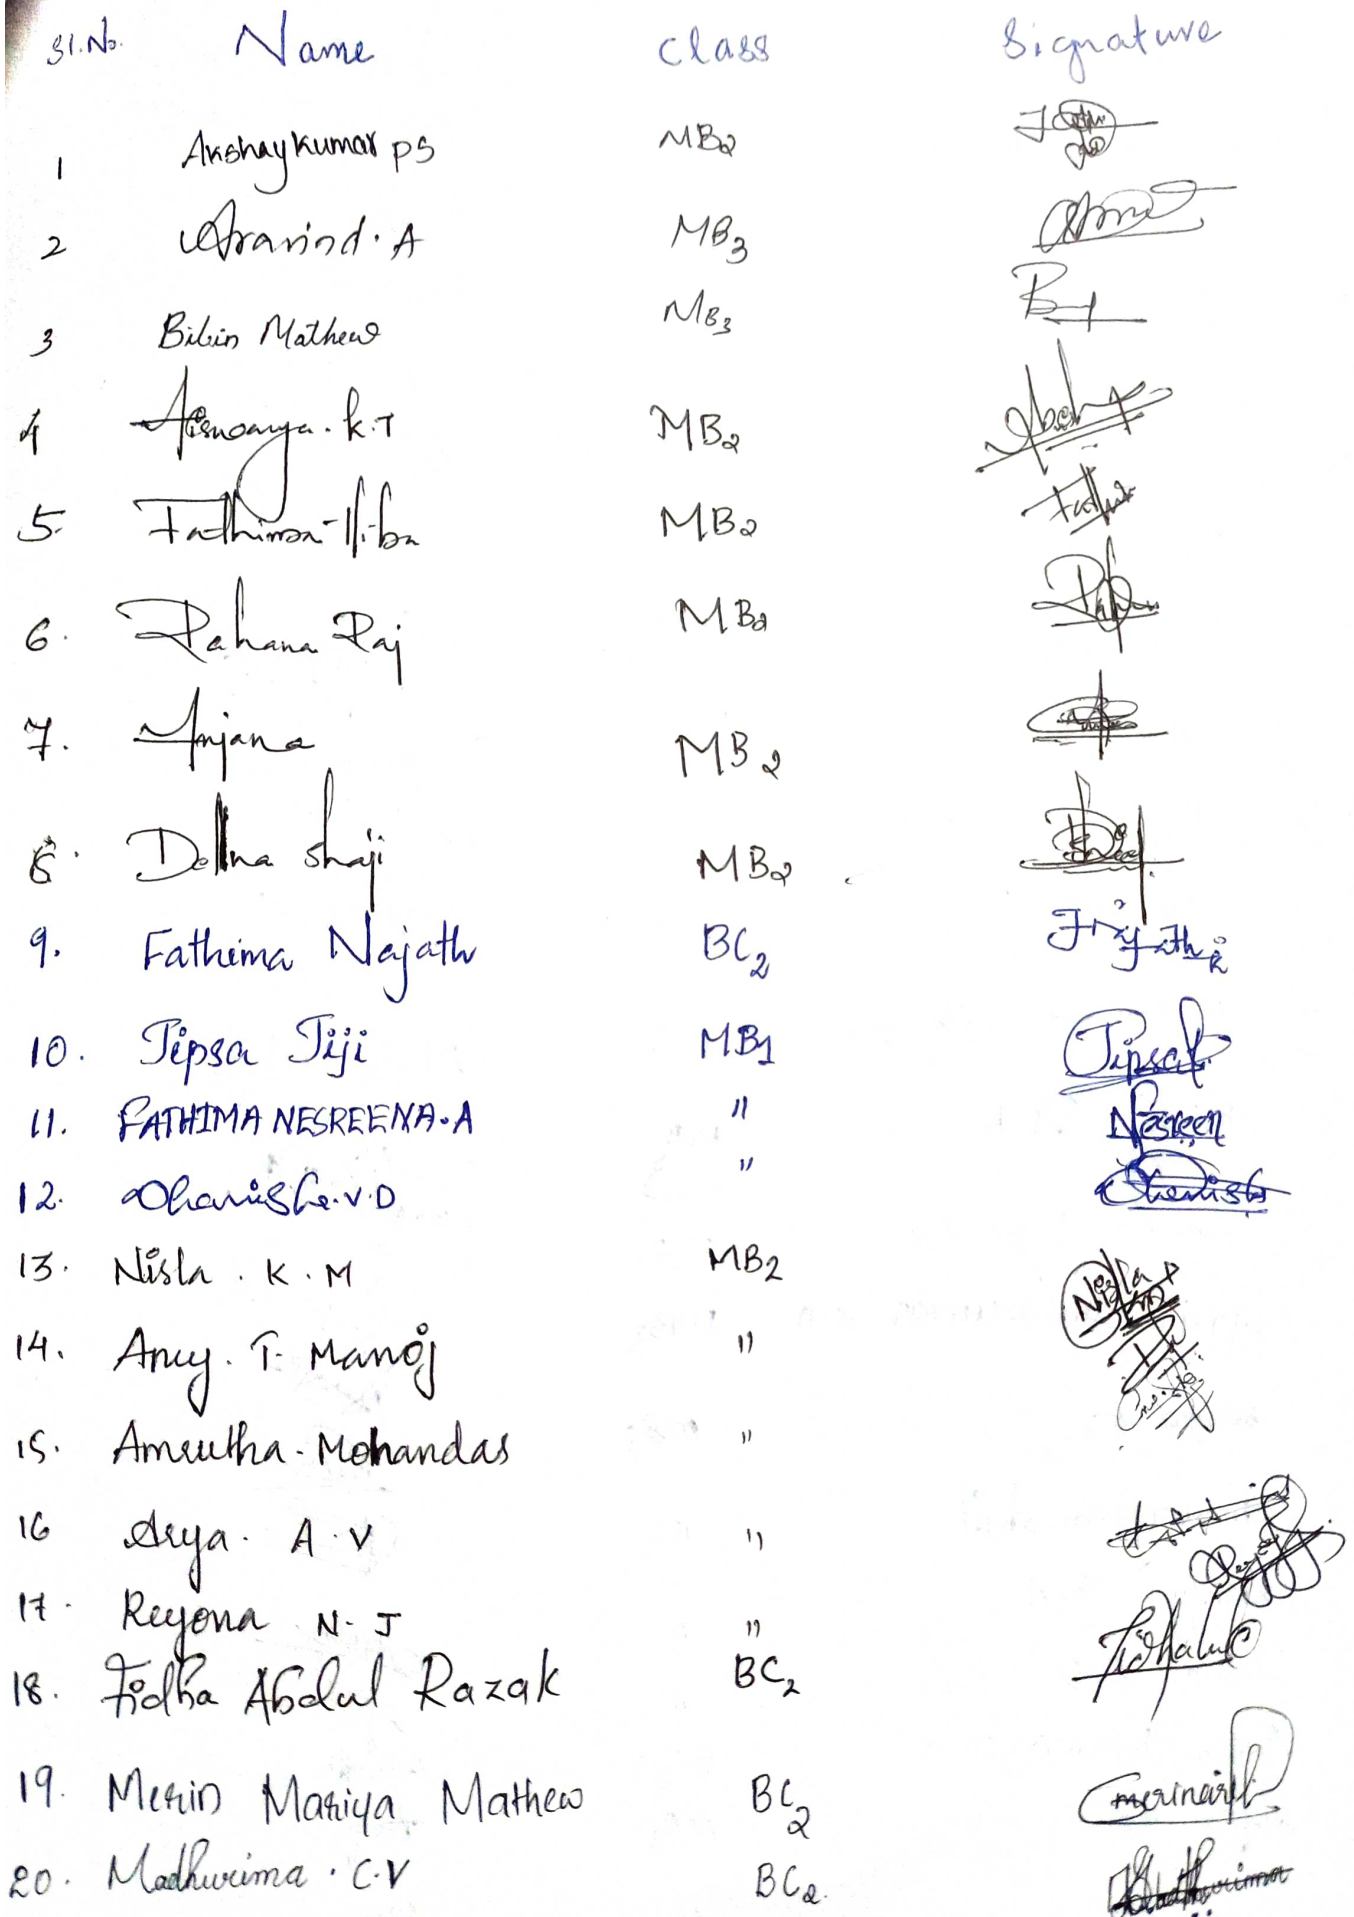 Sl.No. Name Class Signature
1 Akshaykumar PS MB2
2 Aravind. A MB3
3 Bibin Mathew MB3 B
4 Aiswarya. K.T MB2
5. Fathima Hiba MB2
6. Rahana Raj MB2
7. Anjana MB2
8. Dellna Shaji MB2
9. Fathima Najath BC2
10. Jipsa Jiji MB1 Jipsa
11. FATHIMA NESREENA.A " Nesreen
12. Dhanisha.V.D " Dhanisha
13. Nisla. K. M MB2 Nisla
14. Ancy. T. Manoj "
15. Amrutha. Mohandas "
16 Arya. A.V "
17. Reyona N. J "
18. Fidha Abdul Razak BC2
19. Merin Mariya Mathew BC2
20. Madhurima. C.V BC2. Madhurima